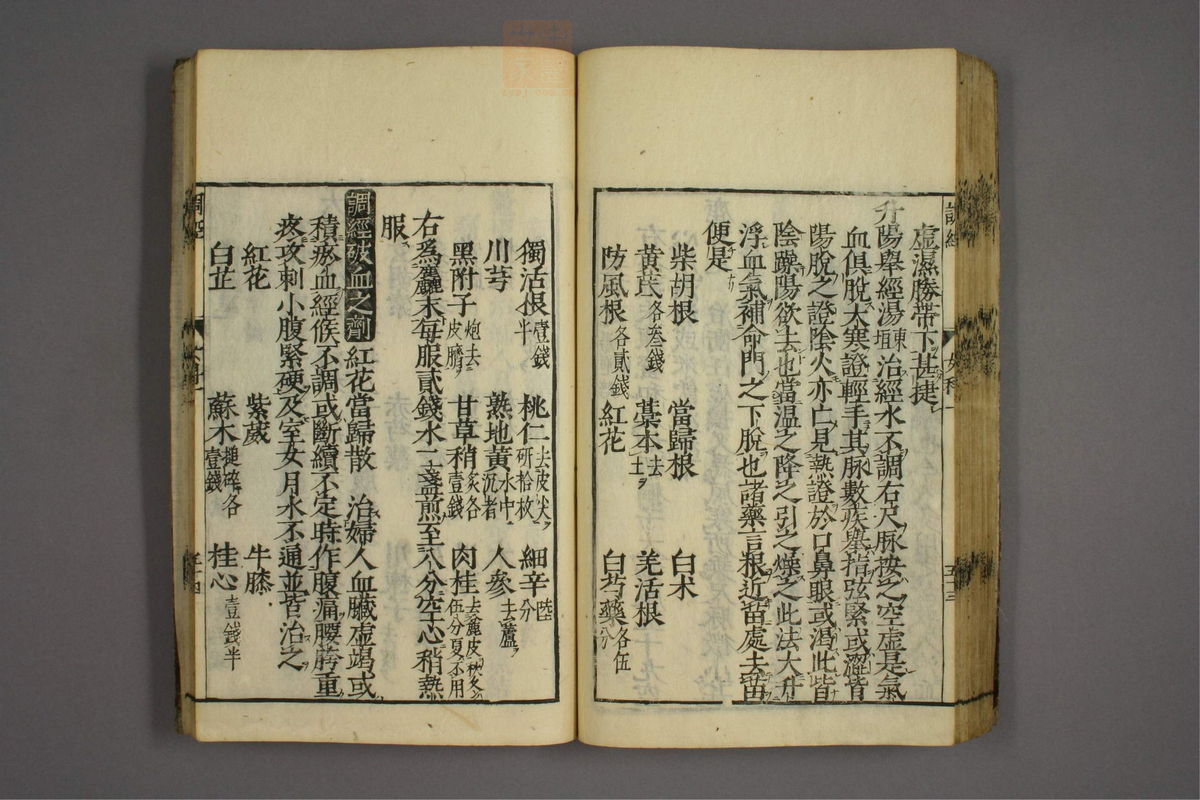 虚濕勝帶下甚捷
升陽舉經湯東垣治經水不調右尺脉按之空虚是氣
血俱脫大寒證輕手其脉數疾舉指弦緊或澀皆
陽脫之證陰火亦亡見熱證於口鼻眼或渴此皆
陰躁陽欲先去也當温之降之引之燥之此法大升
浮血氣補命門之下脫也諸藥言根近苗處去苗
便是
柴胡根 當歸根 白术
黄芪各叁錢 藁本去土 羌活根
防風根各貳錢 紅花 白芍藥各伍分
獨活根壹錢半 桃仁去皮尖研拾枚 細辛陸分
川芎 熟地黄水中沉者 人參去蘆
黑附子炮去皮臍 甘草稍炙各壹錢 肉桂去麄皮秋冬伍分夏不用
右爲麤末每服貳錢水二盞煎至八分空心稍熱
服
調經破血之劑 紅花當歸散 治婦人血臟虚竭或
積瘀血經候不調或斷續不定時作腹痛腰胯重
疼攻刺小腹緊硬及室女月水不通並皆治之
紅花 紫葳 牛膝
白芷 蘇木搥碎各壹錢 桂心壹錢半
女科一
五十三
五十四